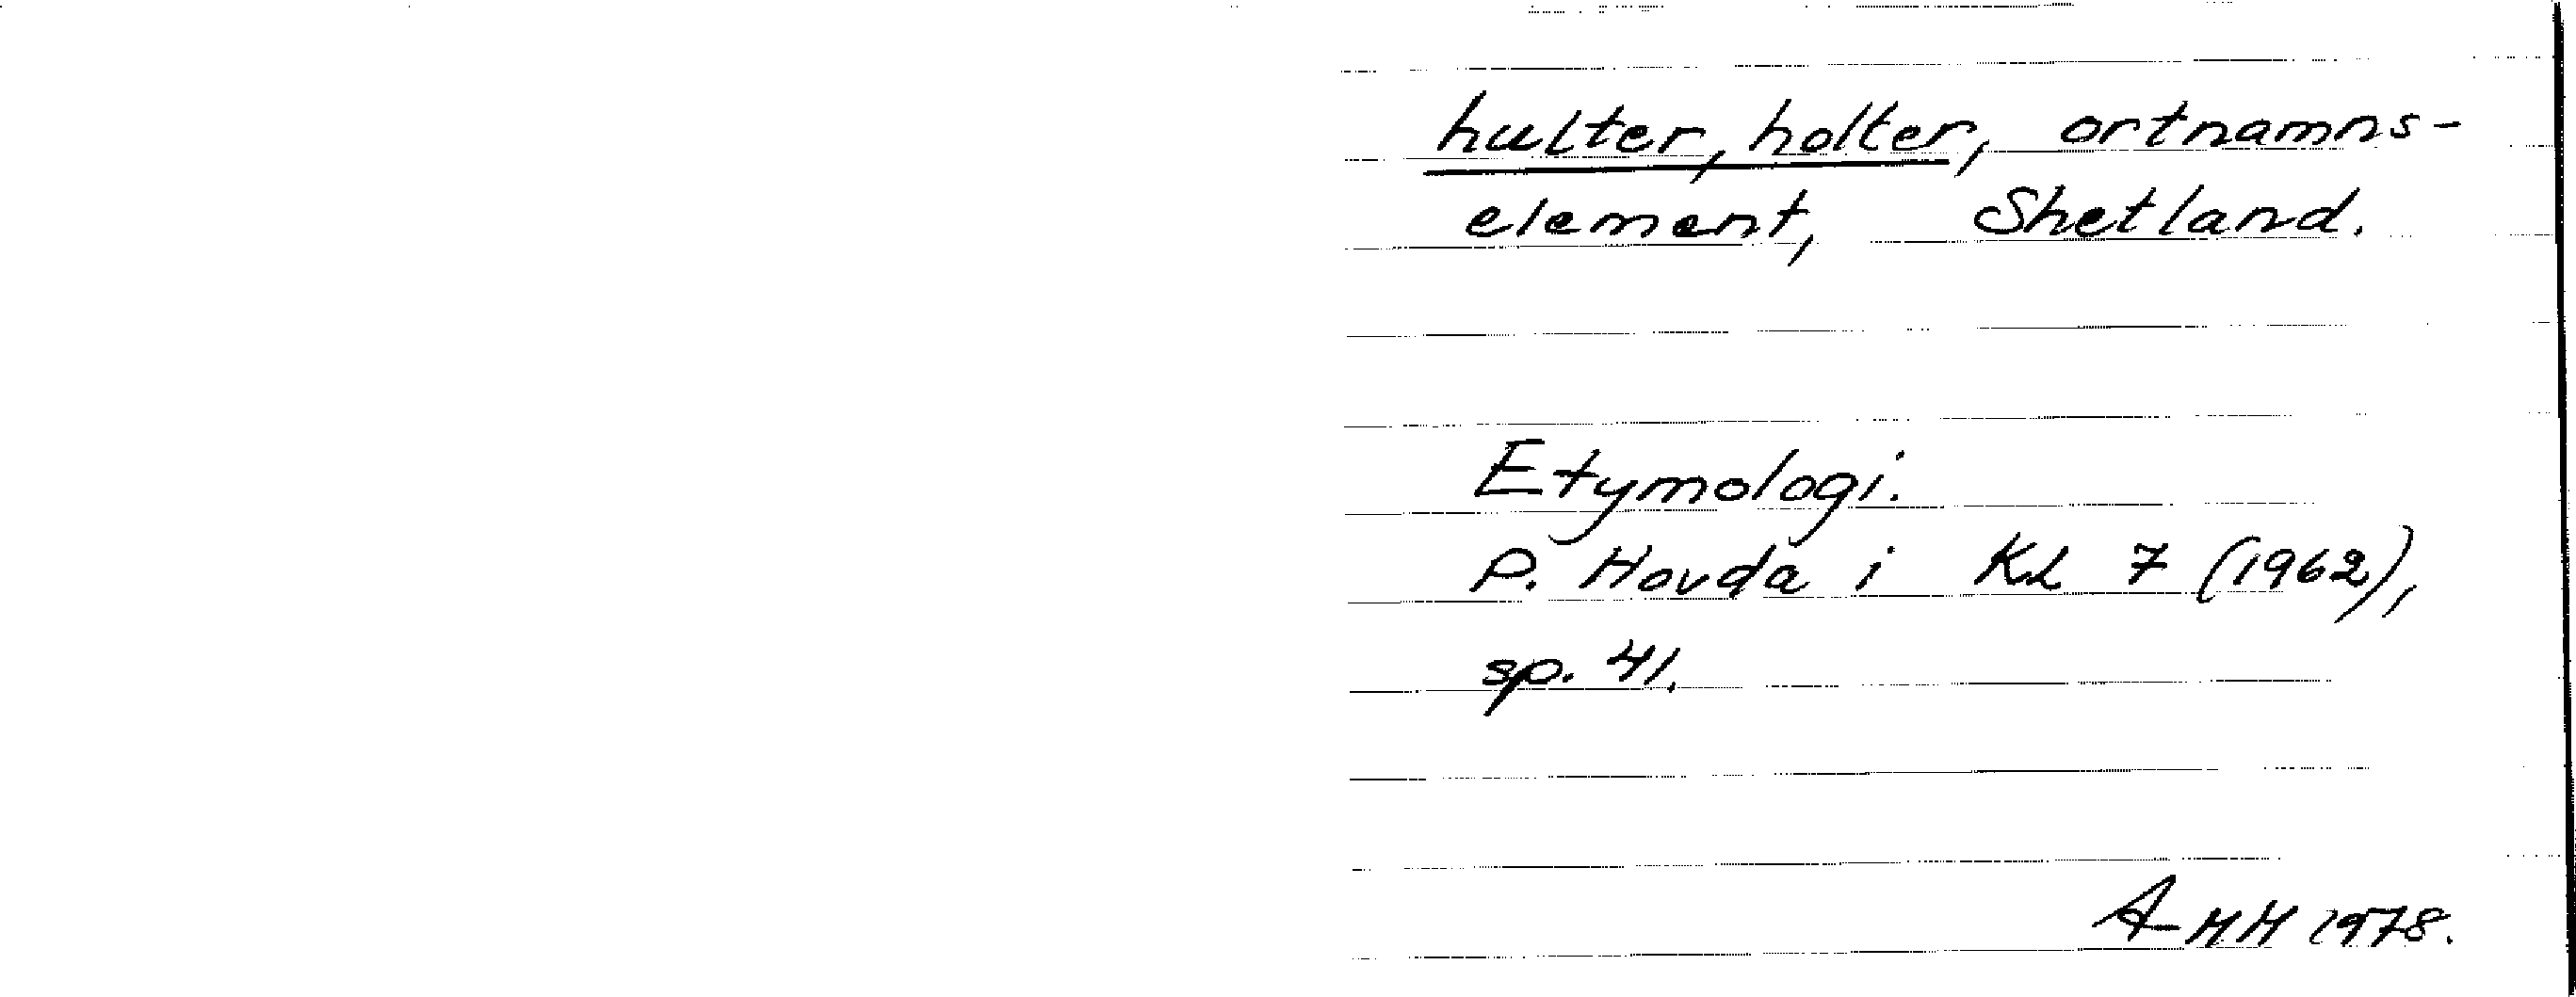 hulter, holter, ortnamns-
element, Shetland.
Etymologi.
P. Hovda i KL 7 (1962),
sp. 41.
AHH 1978.